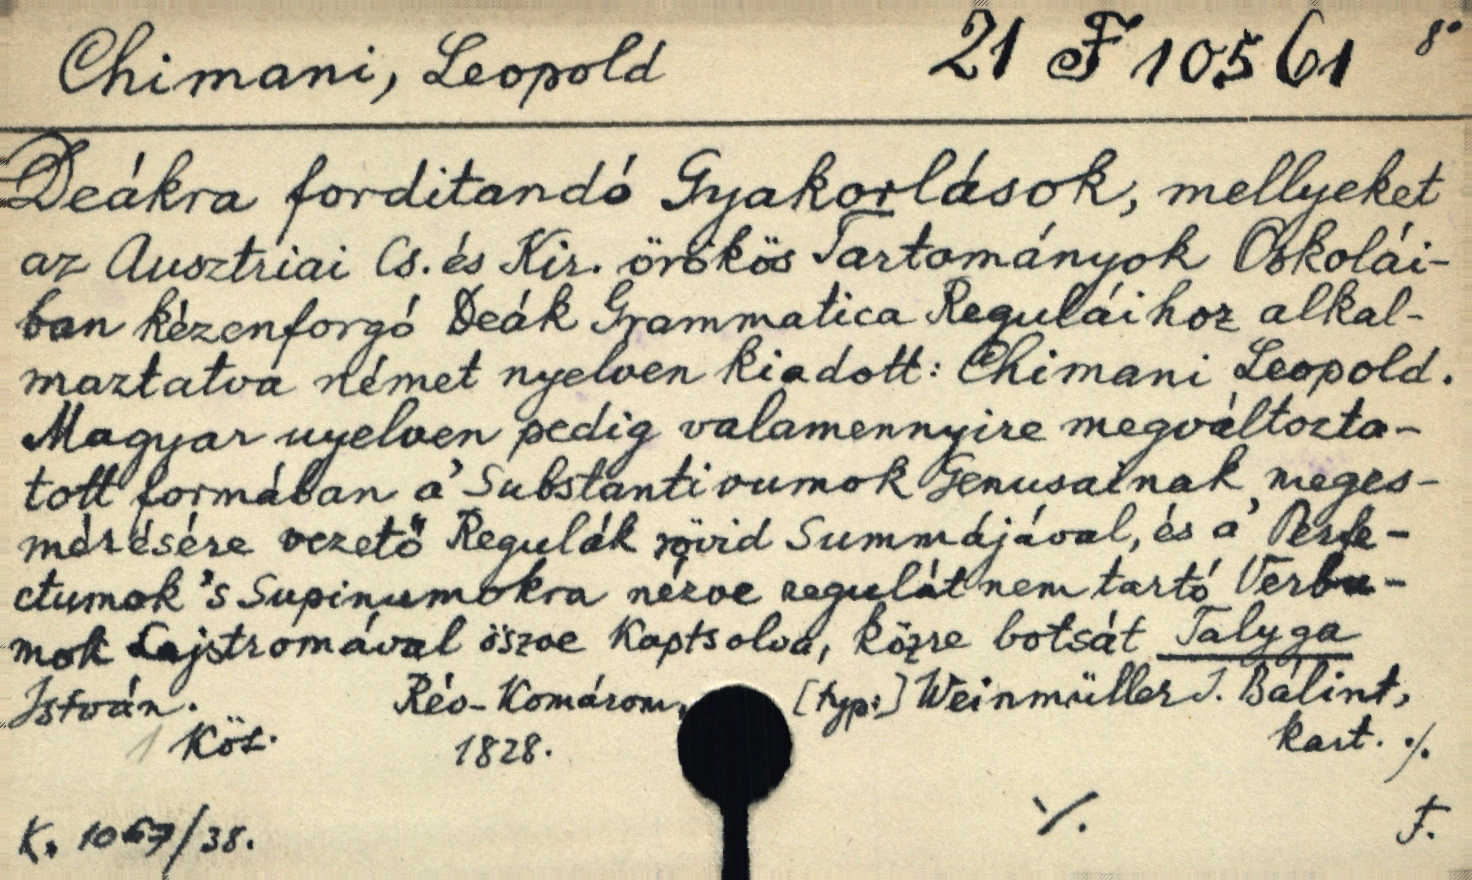 Chimani, Leopold 21 F 10561 8°
Deákra forditandó Gyakorlások, mellyeket
az Ausztriai Cs. és Kir. örökös Tartományok Oskolái-
ban kézenforgó Deák Grammatica Reguláihoz alkal-
maztatva német nyelven kiadott: Chimani Leopold.
Magyar nyelven pedig valamennyire megváltozta-
tott formában a' Substantivumok Genusainak meges-
mérésére vezető Regulák rövid Summájával, és a' Perfe-
ctumok 's Supinumokra nézve regulát nem tartó Verbu-
mok Lajstromával öszve kaptsolva, közre botsát Talyga
István. Rév-Komárom, [typ:] Weinmüller J. Bálint,
1 Köt. 1828. kart. ./.
K. 1067/38. ./. F.